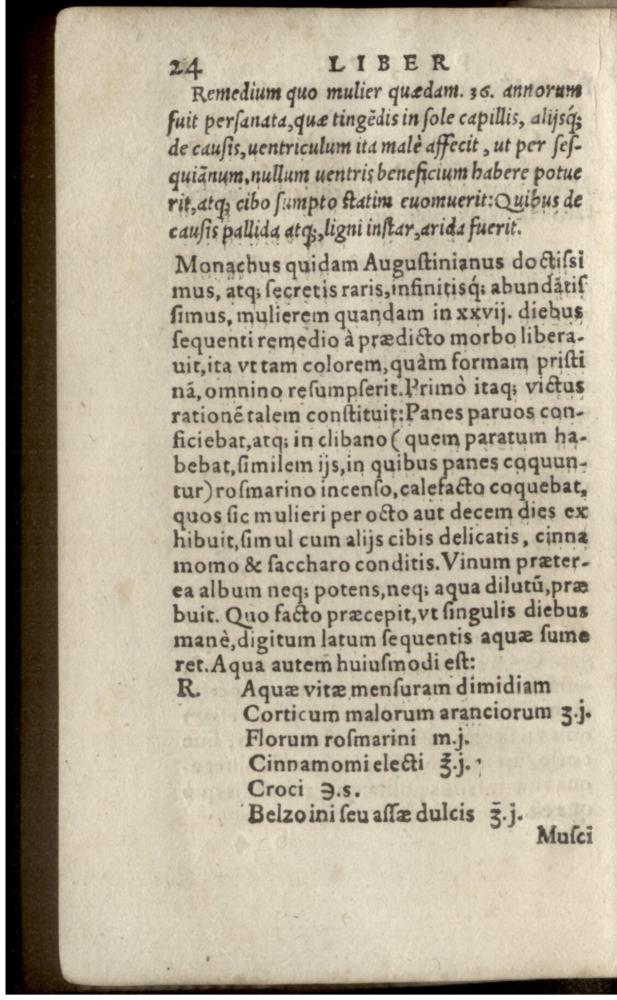 24 LIBER
Remedium quo mulier quædam. 36. annorum
fuit perſanata, quæ tingẽdis in ſole capillis, alijsq́;
de cauſis, uentriculum ita malè affecit, ut per ſeſ-
quiãnum, nullum uentris beneficium habere potue
rit, atq; cibo ſumpto ſtatim euomuerit: Quibus de
cauſis pallida atq;, ligni inſtar, arida fuerit.
Monachus quidam Auguſtinianus doctiſsi
mus, atq; ſecretis raris, infinitisq́; abundãtiſ
ſimus, mulierem quandam in xxvij. diebus
ſequenti remedio à prædicto morbo libera-
uit, ita vt tam colorem, quàm formam priſti
nã, omnino reſumpſerit. Primò itaq; victus
rationẽ talem conſtituit: Panes paruos con-
ficiebat, atq; in clibano (quem paratum ha-
bebat, ſimilem ijs, in quibus panes coquun-
tur) roſmarino incenſo, calefacto coquebat,
quos ſic mulieri per octo aut decem dies ex
hibuit, ſimul cum alijs cibis delicatis, cinna
momo & ſaccharo conditis. Vinum præter-
ea album neq; potens, neq; aqua dilutũ, præ
buit. Quo facto præcepit, vt ſingulis diebus
manè, digitum latum ſequentis aquæ ſume
ret. Aqua autem huiuſmodi eſt:
R. Aquæ vitæ menſuram dimidiam
Corticum malorum aranciorum ʒ.j.
Florum roſmarini m.j.
Cinnamomi electi ℥.j.
Croci ℈.s.
Belzoini ſeu aſſæ dulcis ℥.j.
Muſci